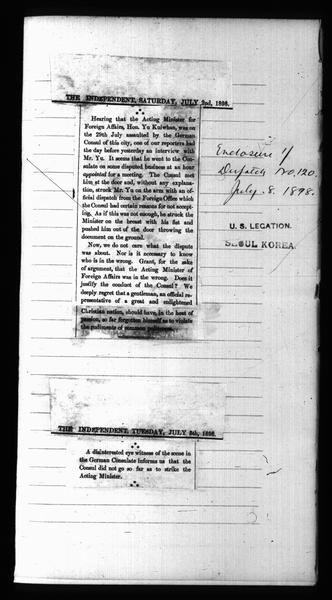 THE INDEPENDENT, SATURDAY, JULY 2nd, 1898.
Hearing that the Acting Minister for
Foreign Affairs, Hon. Yu Kuiwhan, was on
the 29th July assaulted by the German
Consul of this city, one of our reporters had
the day before yesterday an interview with
Mr. Yu. It seems that he went to the Con-
sulate on some disputed business at an hour
appointed for a meeting. The Consul met
him at the door and, without any explana-
tion, struck Mr. Yu on the arm with an of-
ficial dispatch from the Foreign Office which
the Consul had certain reasons for not accept-
ing. As if this was not enough, he struck the
Minister on the breast with his fist and
pushed him out of the door throwing the
document on the ground.
Now, we do not care what the dispute
was about. Nor is it necessary to know
who is in the wrong. Grant, for the sake
of argument, that the Acting Minister of
Foreign Affairs was in the wrong. Does it
justify the conduct of the Consul? We
deeply regret that a gentleman, an official re-
presentative of a great and enlightened
Christian nation, should have, in the heat of
passion, so far forgotten himself as to violate
the rudiments of common politeness.
Enclosure 1/
Dispatch No. 120.
July. 8. 1898.
U. S. LEGATION.
SEOUL KOREA.
THE INDEPENDENT, TUESDAY, JULY 5th, 1898.
A disinterested eye witness of the scene in
the German Consulate informs us that the
Consul did not go so far as to strike the
Acting Minister.